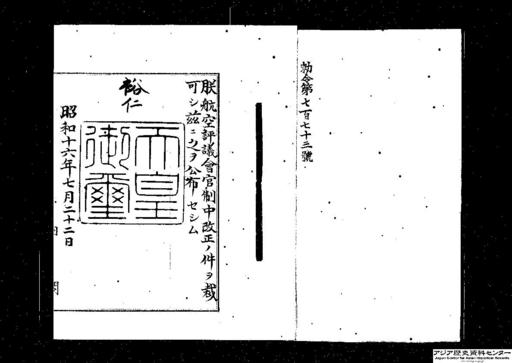 勅令第七百七十三號
朕航空評議會官制中改正ノ件ヲ裁
可シ茲ニ之ヲ公布セシム
裕仁
天皇
御璽
昭和十六年七月二十二日
アジア歴史資料センター
Japan Center for Asian Historical Records